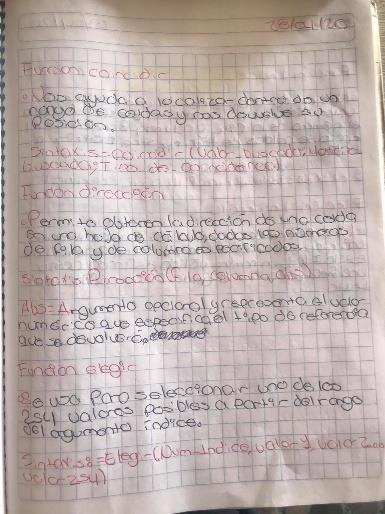 28/01/20
Funcion coincidir
• Nos ayuda a localizar dentro de un
rango de celdas y nos devuelve su
Posición.
Sintaxis = coincidir (Valor_buscado, Matriz
buscada, Tipo de coincidencia)
Funcion dirección
• Permite obtener la dirección de una celda
en una hoja de cálculo, dados los números
de fila y de columna especificados.
Sintaxis: Dirección (Fila, columna, abs)
Abs = Argumento opcional y representa el valor
numérico que especifica el tipo de referencia
que se devolverá.
Funcion elegir
• Se usa para seleccionar uno de los
254 valores posibles a partir del rango
del argumento índice.
Sintaxis = Elegir (Num_Indice, valor 1, valor 2...
valor 254)